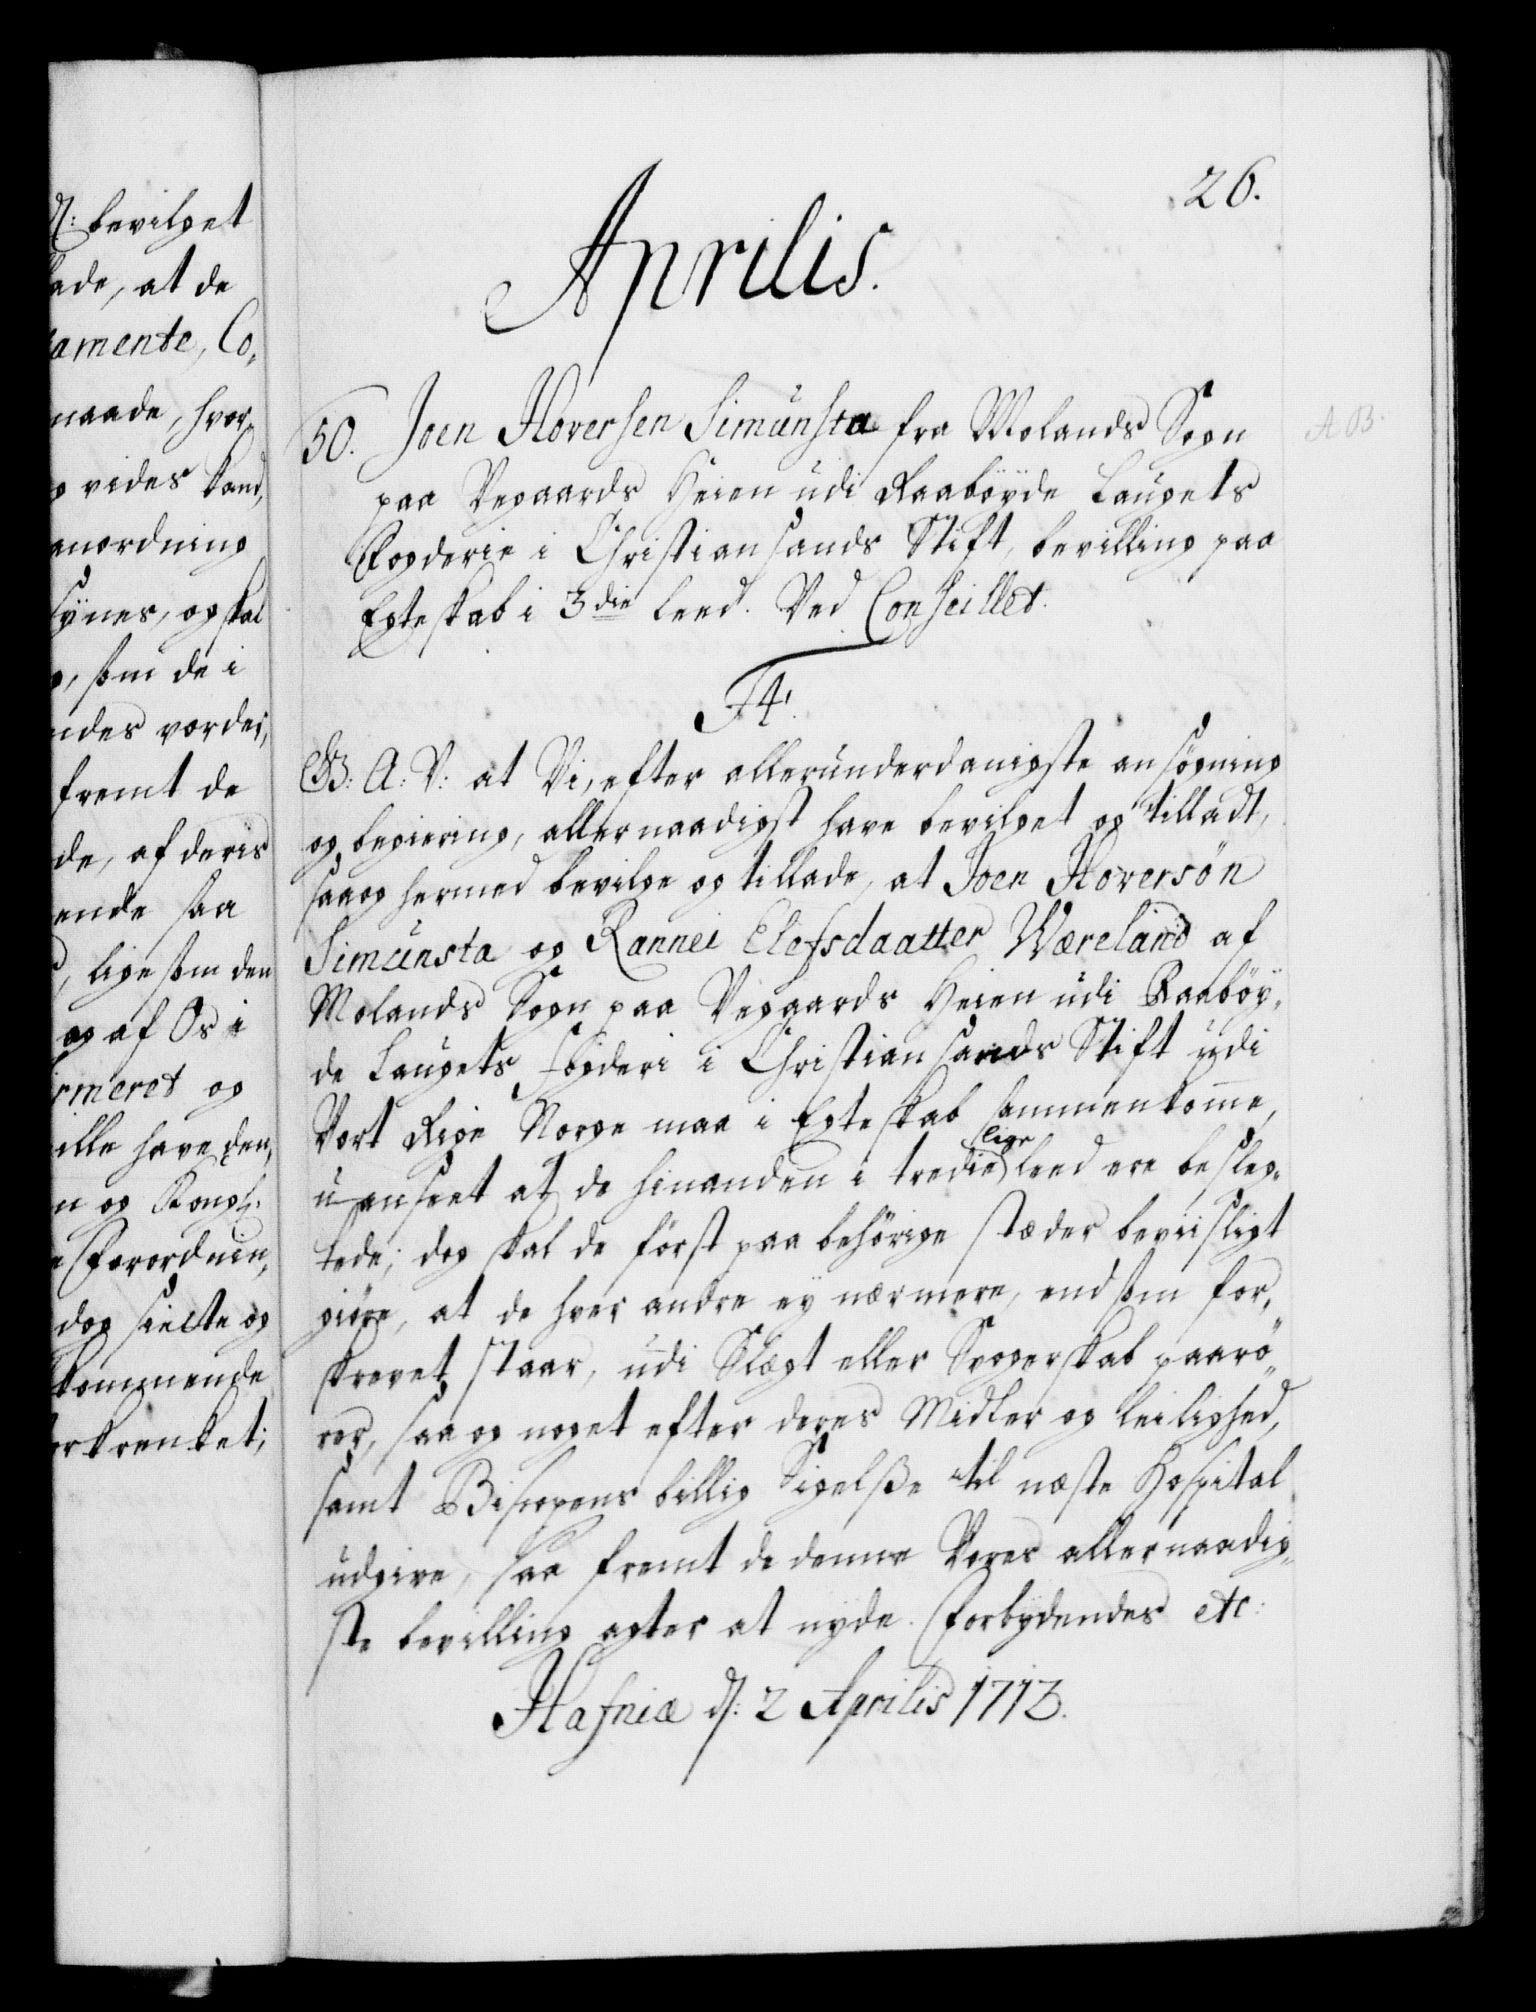 d: bevilget
lade, at de
tamente, Co,
maade, hvor,
g vides kand,
anordning
synes, og skal
g, som de i
ndes vorder,
fremt de
de, af deris
ende saa
, lige som den
og af Os i
rmeret og
ville have den,
n og Kongl:
e Forordnin,
dog sielte og
kommende
orkrenket;
26.
Aprilis.
A B.
50. Joen Hoversen Simunsta fra Molands Sogn
paa Vegaards Heien udi Raabøyde Laugets
Fogderie i Christiansands Stift, bevilling paa
Egteskab i 3die leed. Ved Conseillet.
F4.
G: A: V: at Vi, efter allerunderdanigste ansøgning
og begiering, allernaadigst have bevilget og tilladt,
saa og hermed bevilge og tillade, at Joen Hoversøn
Simunsta og Rannei Elefsdaatter Wæreland af
Molands Sogn paa Vegaards Heien udi Raabøy,
de Laugets fogderi i Christiansands Stift udi
Vort Rige Norge maa i Egteskab sammenkome,
uanseet at de hinanden i tredie lige leed ere besleg,
tede; dog skal de først paa behørige stæder beviisligt
giøre, at de hver andre ey nærmere, end som for,
skrevet staar, udi Slægt eller Svogerskab paarø,
rer, saa og noget efter deres Midler og leilighed,
samt Biscopens billig Sigelße til næste Hospital
udgive, saa fremt de denne Vores allernaadig,
ste bevilling agter at nyde. Forbydendes etc:
Hafniæ d: 2 Aprilis 1713.